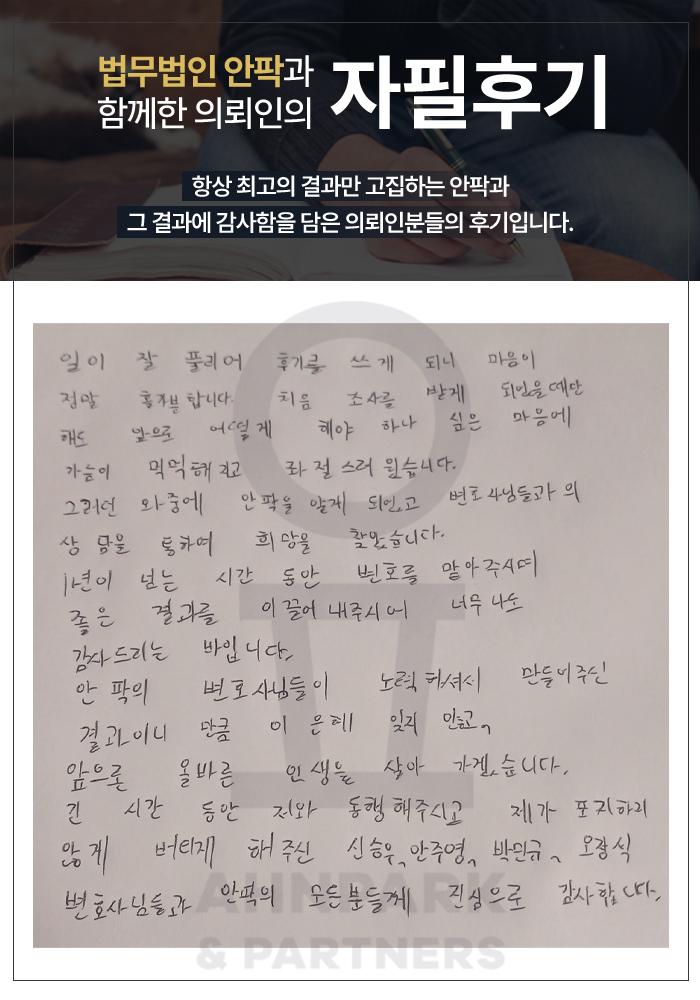 법무법인 안팍과
함께한 의뢰인의
자필후기
항상 최고의 결과만 고집하는 안팍과
그 결과에 감사함을 담은 의뢰인분들의 후기입니다.
일이 잘 풀리어 후기를 쓰게 되니 마음이
정말 홀가분합니다. 처음 조사를 받게 되었을때만
해도 앞으로 어떻게 해야 하나 싶은 마음에
가슴이 먹먹해지고 좌절스러웠습니다.
그러던 와중에 안팍을 알게 되었고 변호사님들과의
상담을 통하여 희망을 찾았습니다.
1년이 넘는 시간 동안 변호를 맡아주시며
좋은 결과를 이끌어내주시어 너무나도
감사드리는 바입니다.
안팍의 변호사님들이 노력하셔서 만들어주신
결과이니 만큼 이 은혜 잊지 않고,
앞으론 올바른 인생을 살아 가겠습니다.
긴 시간 동안 저와 동행해주시고 제가 포기하지
않게 버티게 해주신 신승우, 안주영, 박민규, 오광식
변호사님들과 안팍의 모든분들께 진심으로 감사합니다.
AHNPARK
& PARTNERS